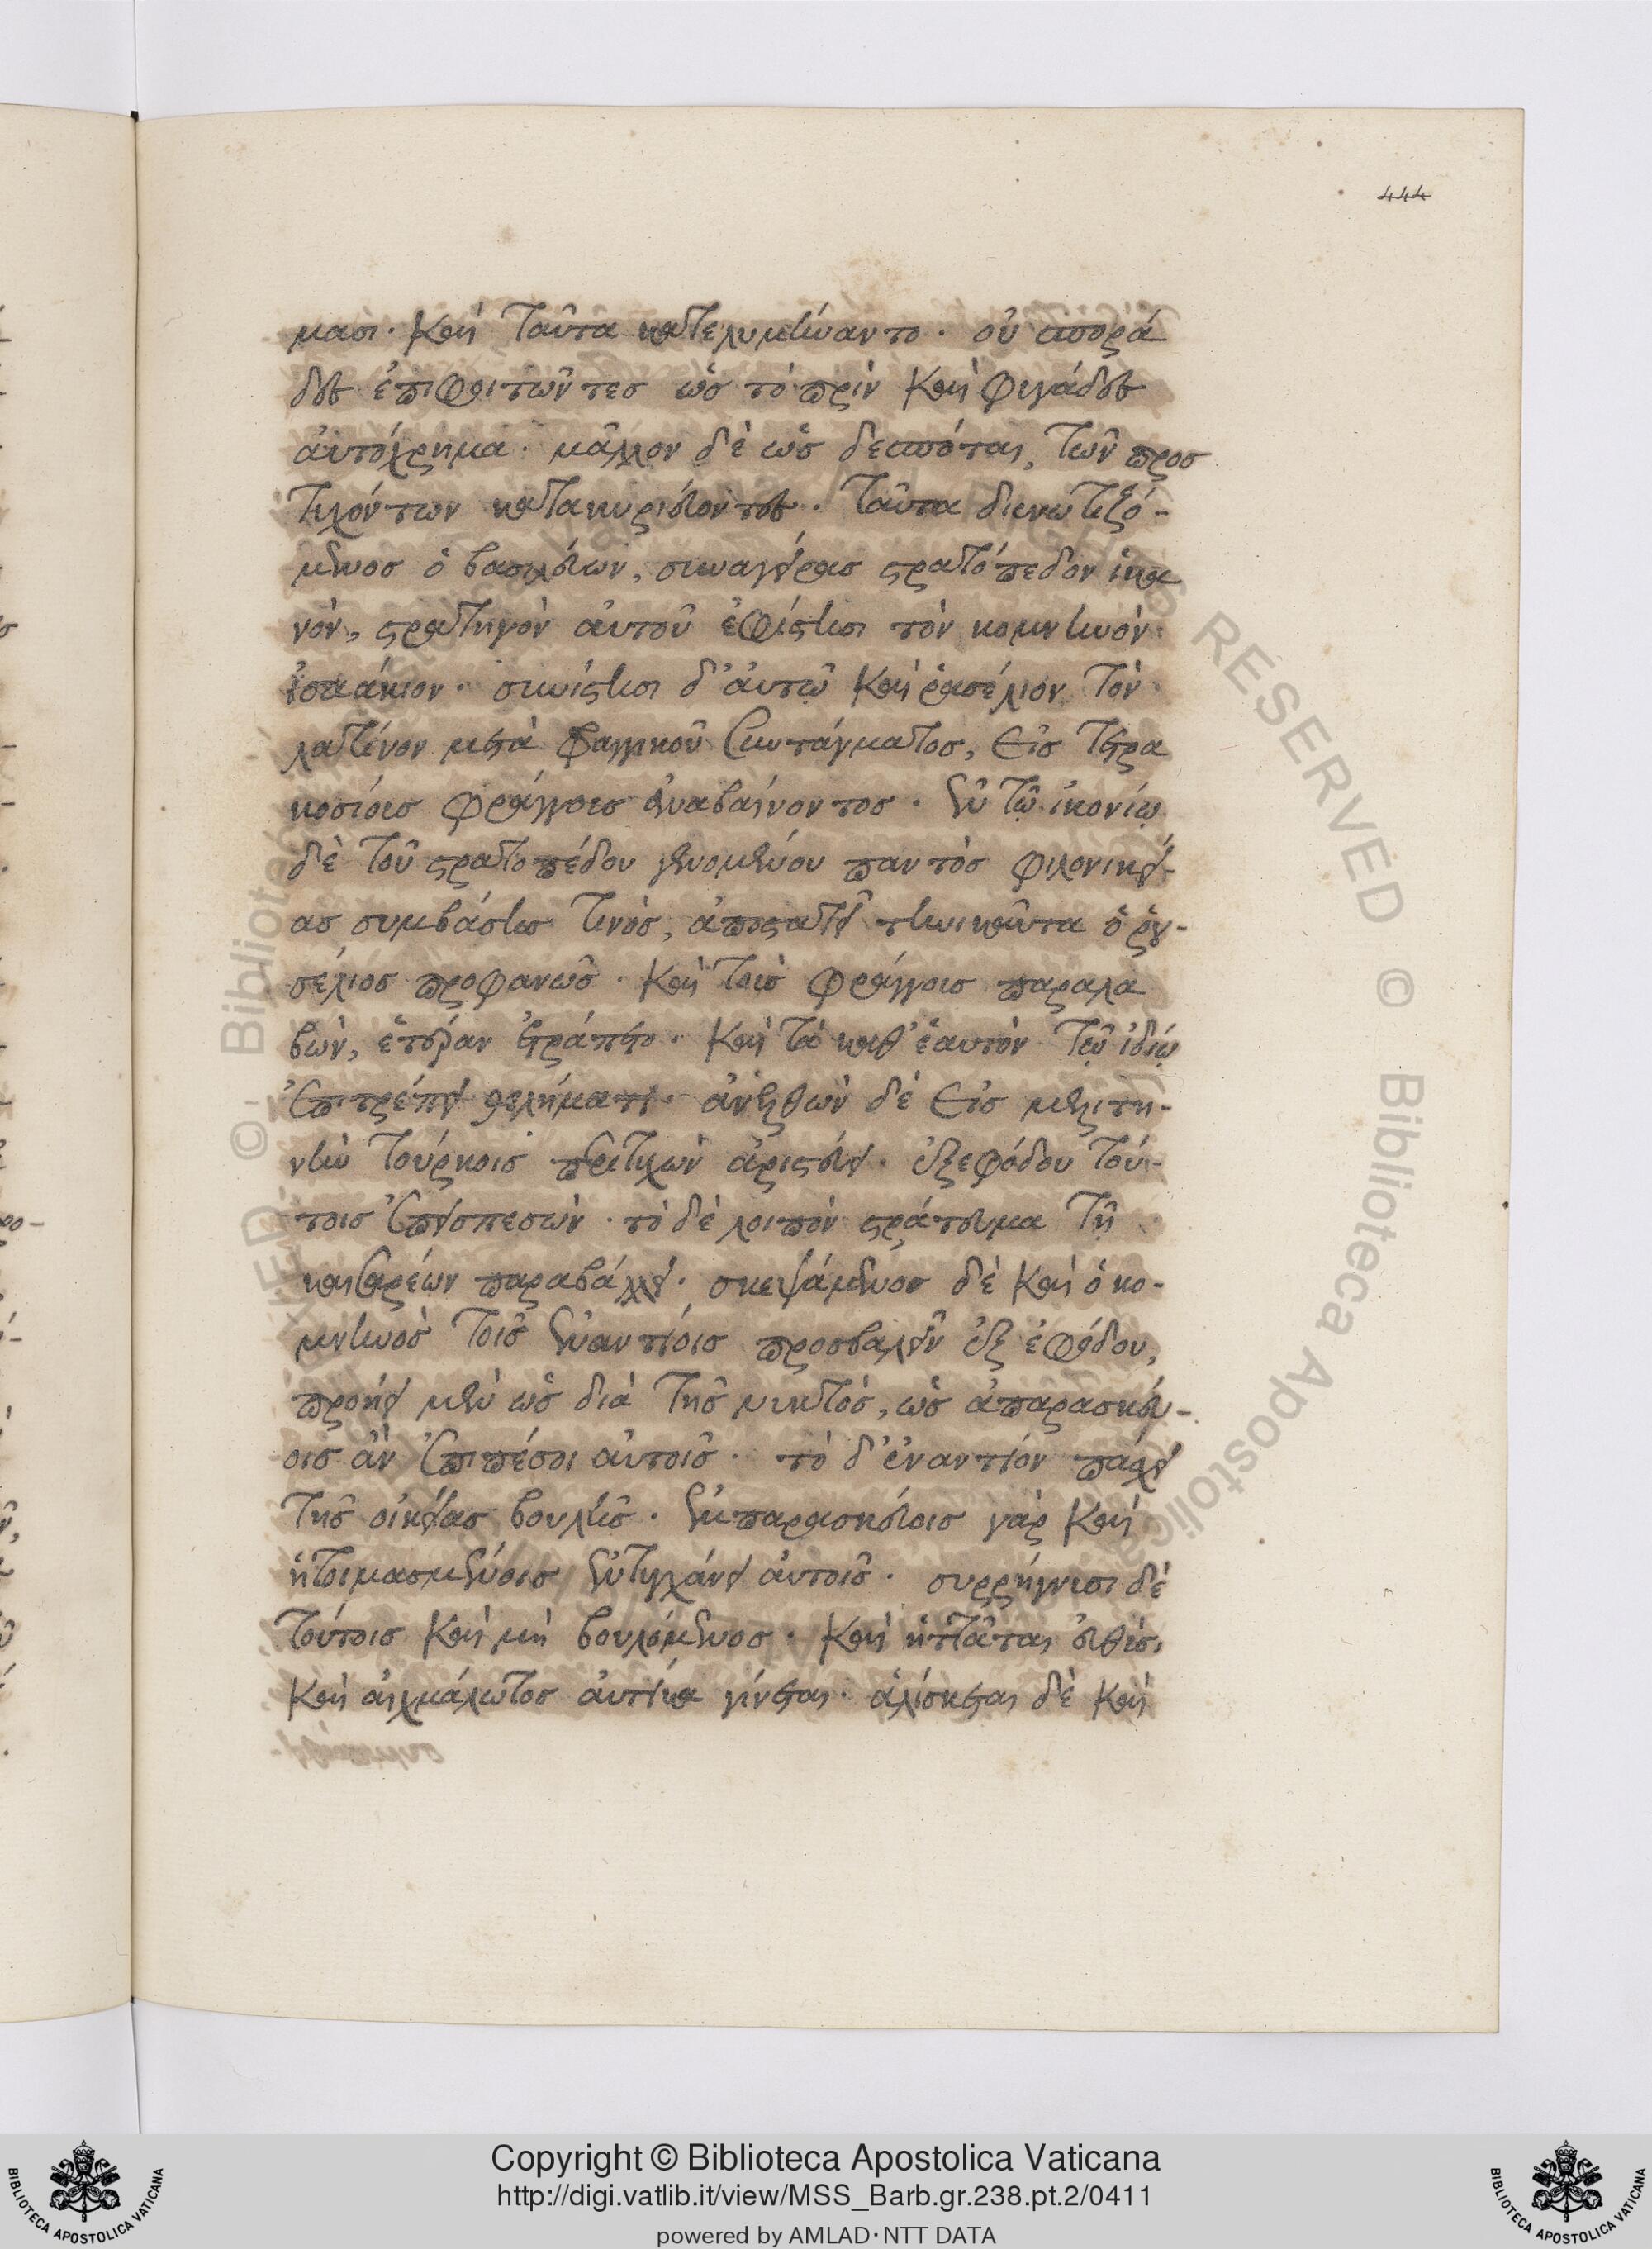 444
μασι· καὶ ταῦτα κατελυμήναντο· οὐ σπορά
δες ἐπιφοιτῶντες ὡς τὸ πρὶν καὶ φυγάδες
αὐτόχρημα· μᾶλλον δὲ ὡς δεσπόται, τῶν προσ
τυχόντων κατακυριεύοντες· ταῦτα διενωτιζό-
μενος ὁ βασιλεύων, συναγείρας στρατόπεδον ἱκα
νὸν, στρατηγὸν αὐτοῦ ἐφίστησι τὸν κομνηνὸν
ἰσαάκιον· συνίστησι δ' αὐτῷ καὶ ῥασέλιον τὸν
λατίνον μετὰ φραγγικοῦ συντάγματος, εἰς τετρα
κοσίοις φράγγοις ἀναβαίνοντος· ἐν τῷ ἰκονίῳ
δὲ τοῦ στρατοπέδου γενομένου παντὸς φιλονικεί-
ας συμβάσης τινὸς, ἀποστατεῖ τηνικαῦτα ὁ ῥου-
σέλιος προφανῶς· καὶ τοὺς φράγγοις παραλα
βὼν, ἑτέραν ἐτράπετο· καὶ τὸ καθ' ἑαυτὸν τῷ ἰδίῳ
ἐπιτρέπει θελήματι· ἀνελθὼν δὲ εἰς μελιτη-
νὴν τούρκοις περιτυχὼν ἀριστεύει· ἐξεφόδου τού-
τοις ἐπεισπεσὼν· τὸ δὲ λοιπὸν στράτευμα τῇ
καισαρέων παραβάλλει· σκεψάμενος δὲ καὶ ὁ κο-
μνηνὸς τοῖς ἐναντίοις προσβαλεῖν ἐξ ἐφόδου,
προῄει μὲν ὡς διὰ τῆς νυκτὸς, ὡς ἀπαρασκεύ-
οις ἂν ἐπιπέσοι αὐτοῖς· τὸ δ' ἐναντίον πάσχει
τῆς οἰκείας βουλῆς· ἐμπαρασκεύοις γὰρ καὶ
ἡτοιμασμένοις ἐντυγχάνει αὐτοῖς· συρρήγνυσι δὲ
τούτοις καὶ μὴ βουλόμενος· καὶ ἡττᾶται εὐθὺς,
καὶ αἰχμάλωτος αὐτίκα γίνεται· ἁλίσκεται δὲ καὶ
Copyright © Biblioteca Apostolica Vaticana
http://digi.vatlib.it/view/MSS_Barb.gr.238.pt.2/0411
powered by AMLAD·NTT DATA
BIBLIOTECA APOSTOLICA VATICANA
BIBLIOTECA APOSTOLICA VATICANA